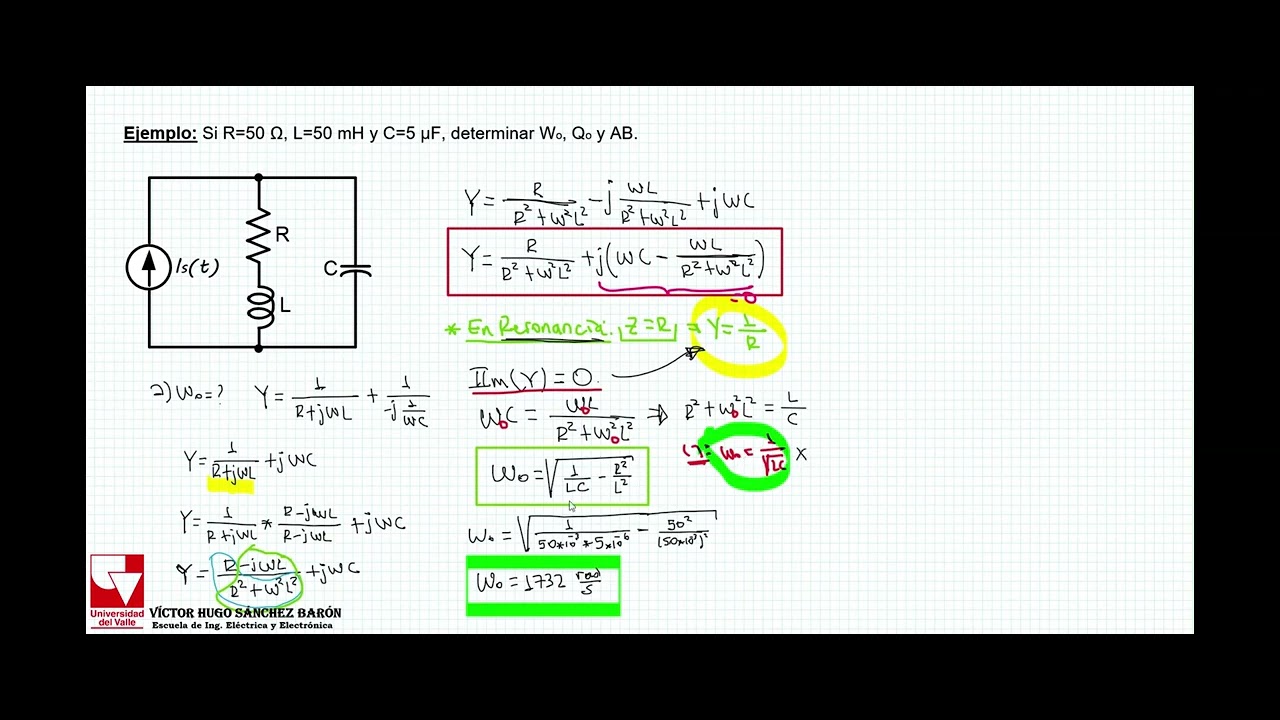 Ejemplo: Si R=50 Ω, L=50 mH y C=5 µF, determinar Wₒ, Qₒ y AB.
Is(t)
R
L
C
2) Wo = ? Y = 1/(R+jWL) + 1/(-j 1/WC)
Y = 1/(R+jWL) + jWC
Y = 1/(R+jWL) * (R-jWL)/(R-jWL) + jWC
Y = (R-jWL)/(R²+W²L²) + jWC
Y = R/(R²+W²L²) - j WL/(R²+W²L²) + jWC
Y = R/(R²+W²L²) + j(WC - WL/(R²+W²L²))
=0
* En Resonancia. Z=R ⇒ Y = 1/R
IIm(Y) = 0.
WoC = WoL/(R²+Wo²L²) ⇒ R²+Wo²L² = L/C
Wo = 1/√LC X
Wo = √(1/LC - R²/L²)
Wo = √(1/(50*10⁻³*5*10⁻⁶) - 50²/(50*10⁻³)²)
Wo = 1732 rad/s
Universidad
del Valle
VÍCTOR HUGO SÁNCHEZ BARÓN
Escuela de Ing. Eléctrica y Electrónica